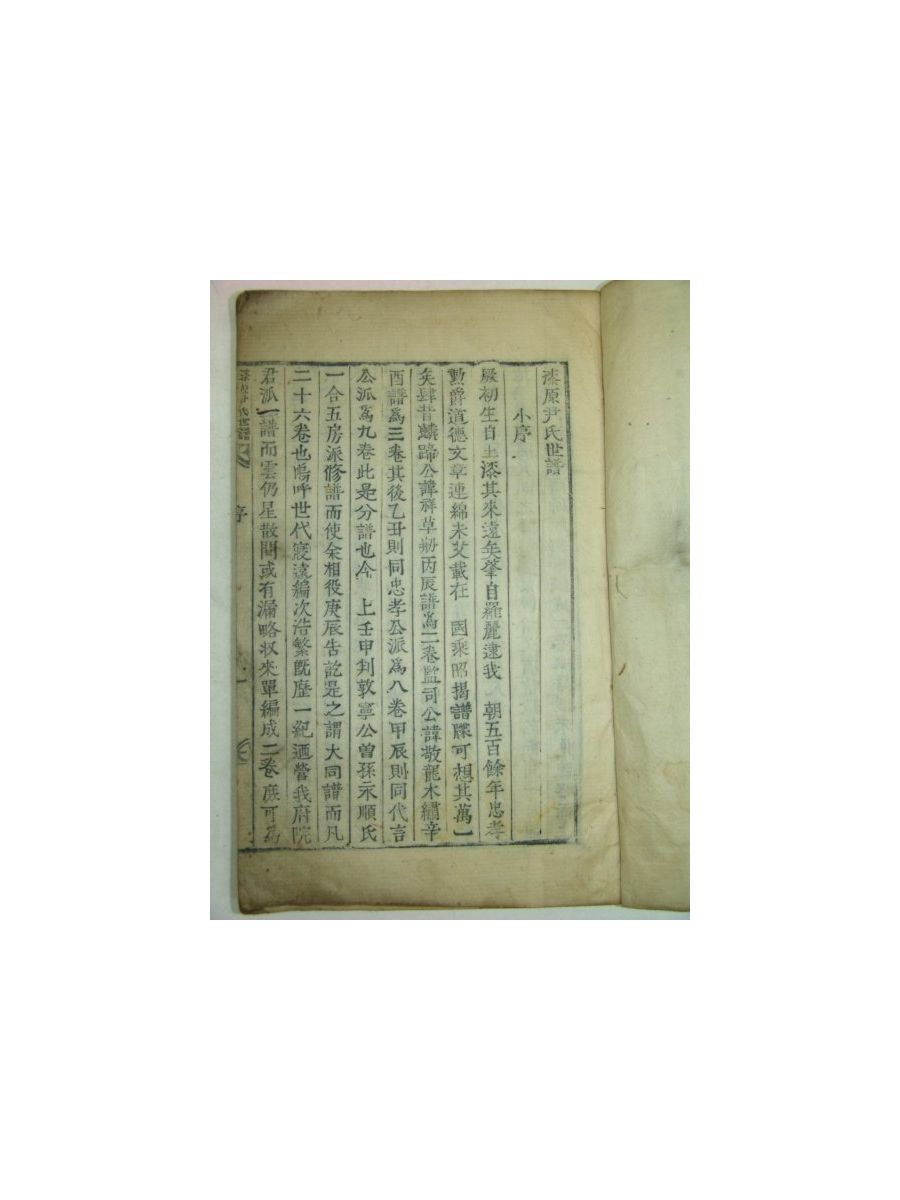 漆原尹氏世譜
小序
厥初生自土漆其來遠矣肇自羅麗逮我 朝五百餘年忠孝
勲爵道德文章連綿未艾載在 國乘昭揭譜牒可想其萬一
矣肆昔麟蹄公諱祥草刱丙辰譜爲二卷監司公諱敬龍木繡辛
酉譜爲三卷其後乙丑則同忠孝公派爲八卷甲辰則同代言
公派爲九卷此是分譜也今 上壬申判敦寧公曽孫永順氏
一合五房派修譜而使余相役庚辰告訖是之謂大同譜而凡
二十六卷也嗚呼世代寖遠編次浩繁既歷一紀廼營我府院
君派一譜而雲仍星散間或有漏略収來單編成二卷庶可爲
序